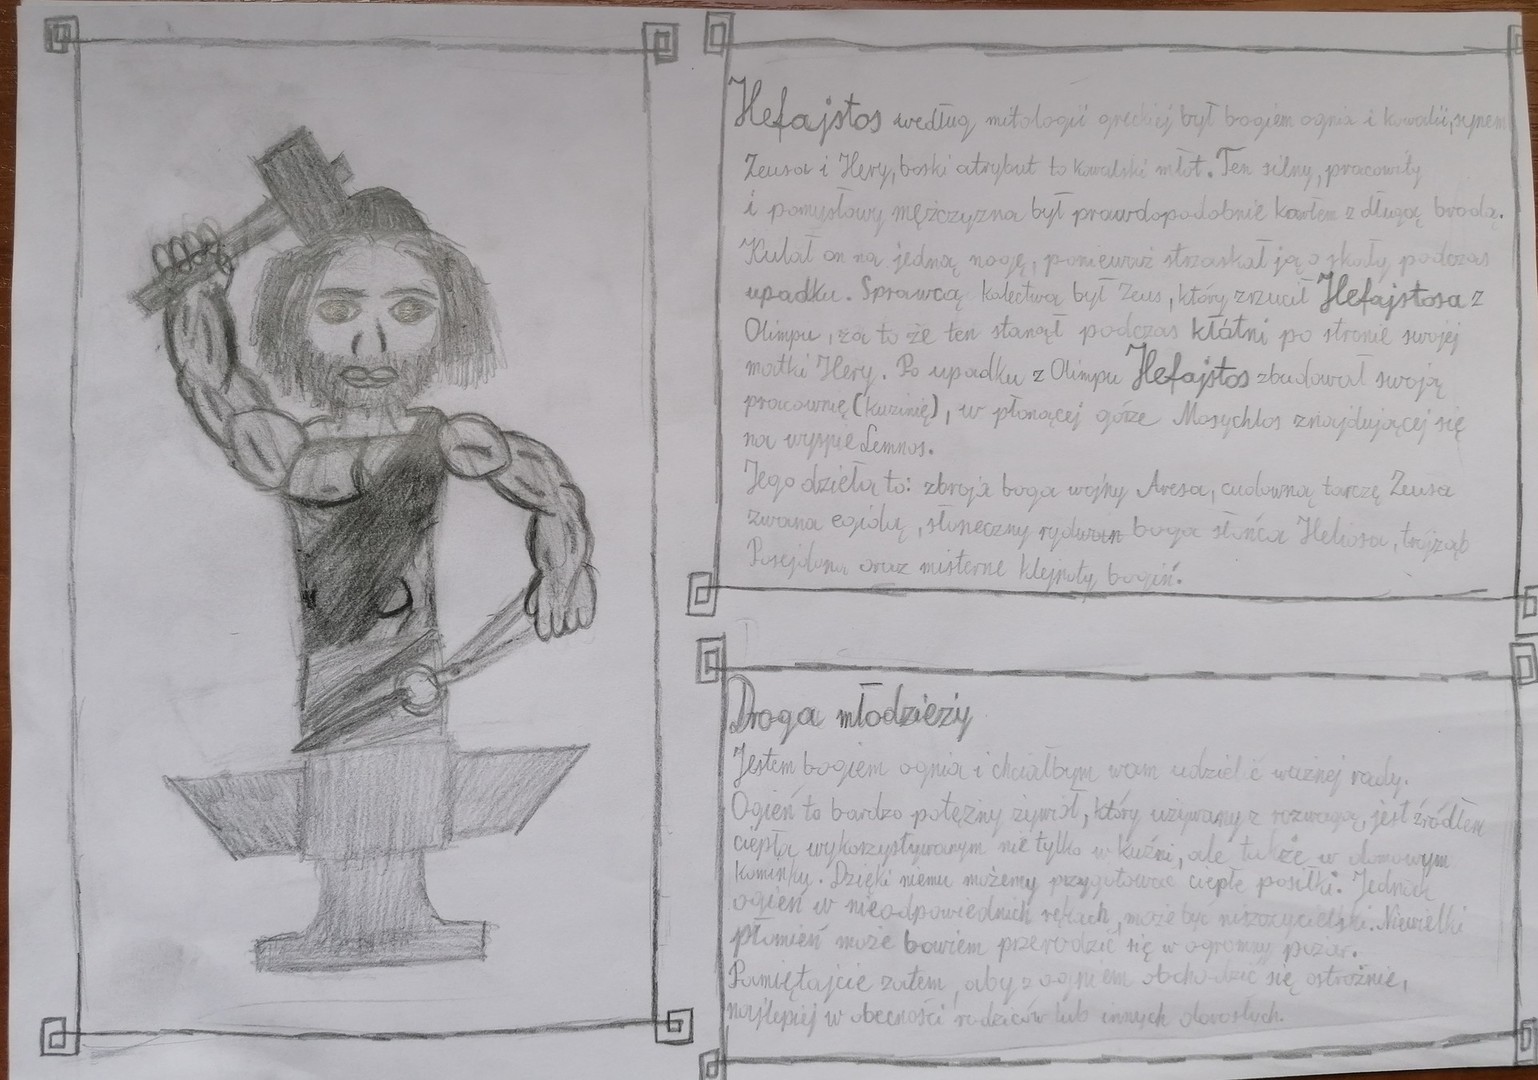 Hefajstos według mitologii greckiej był bogiem ognia i kowali, synem
Zeusa i Hery, boski atrybut to kowalski młot. Ten silny, pracowity
i pomysłowy mężczyzna był prawdopodobnie karłem z długą brodą.
Kulał on na jedną nogę, ponieważ strzaskał ją o skały podczas
upadku. Sprawcą kalectwa był Zeus, który zrzucił Hefajstosa z
Olimpu, za to że ten stanął podczas kłótni po stronie swojej
matki Hery. Po upadku z Olimpu Hefajstos zbudował swoją
pracownię (kuźnię), w płonącej górze Mosychlos znajdującej się
na wyspie Lemnos.
Jego dzieła to: zbroja boga wojny Aresa, cudowną tarczę Zeusa
zwana egidą, słoneczny rydwan boga słońca Heliosa, trójząb
Posejdona oraz misterne klejnoty bogiń.
Droga młodzieży
Jestem bogiem ognia i chciałbym wam udzielić ważnej rady.
Ogień to bardzo potężny żywioł, który używany z rozwagą, jest źródłem
ciepła wykorzystywanym nie tylko w kuźni, ale także w domowym
kominku. Dzięki niemu możemy przygotować ciepłe posiłki. Jednak
ogień w nieodpowiednich rękach, może być niszczycielski. Niewielki
płomień może bowiem przerodzić się w ogromny pożar.
Pamiętajcie zatem, aby z ogniem obchodzić się ostrożnie,
najlepiej w obecności rodziców lub innych dorosłych.